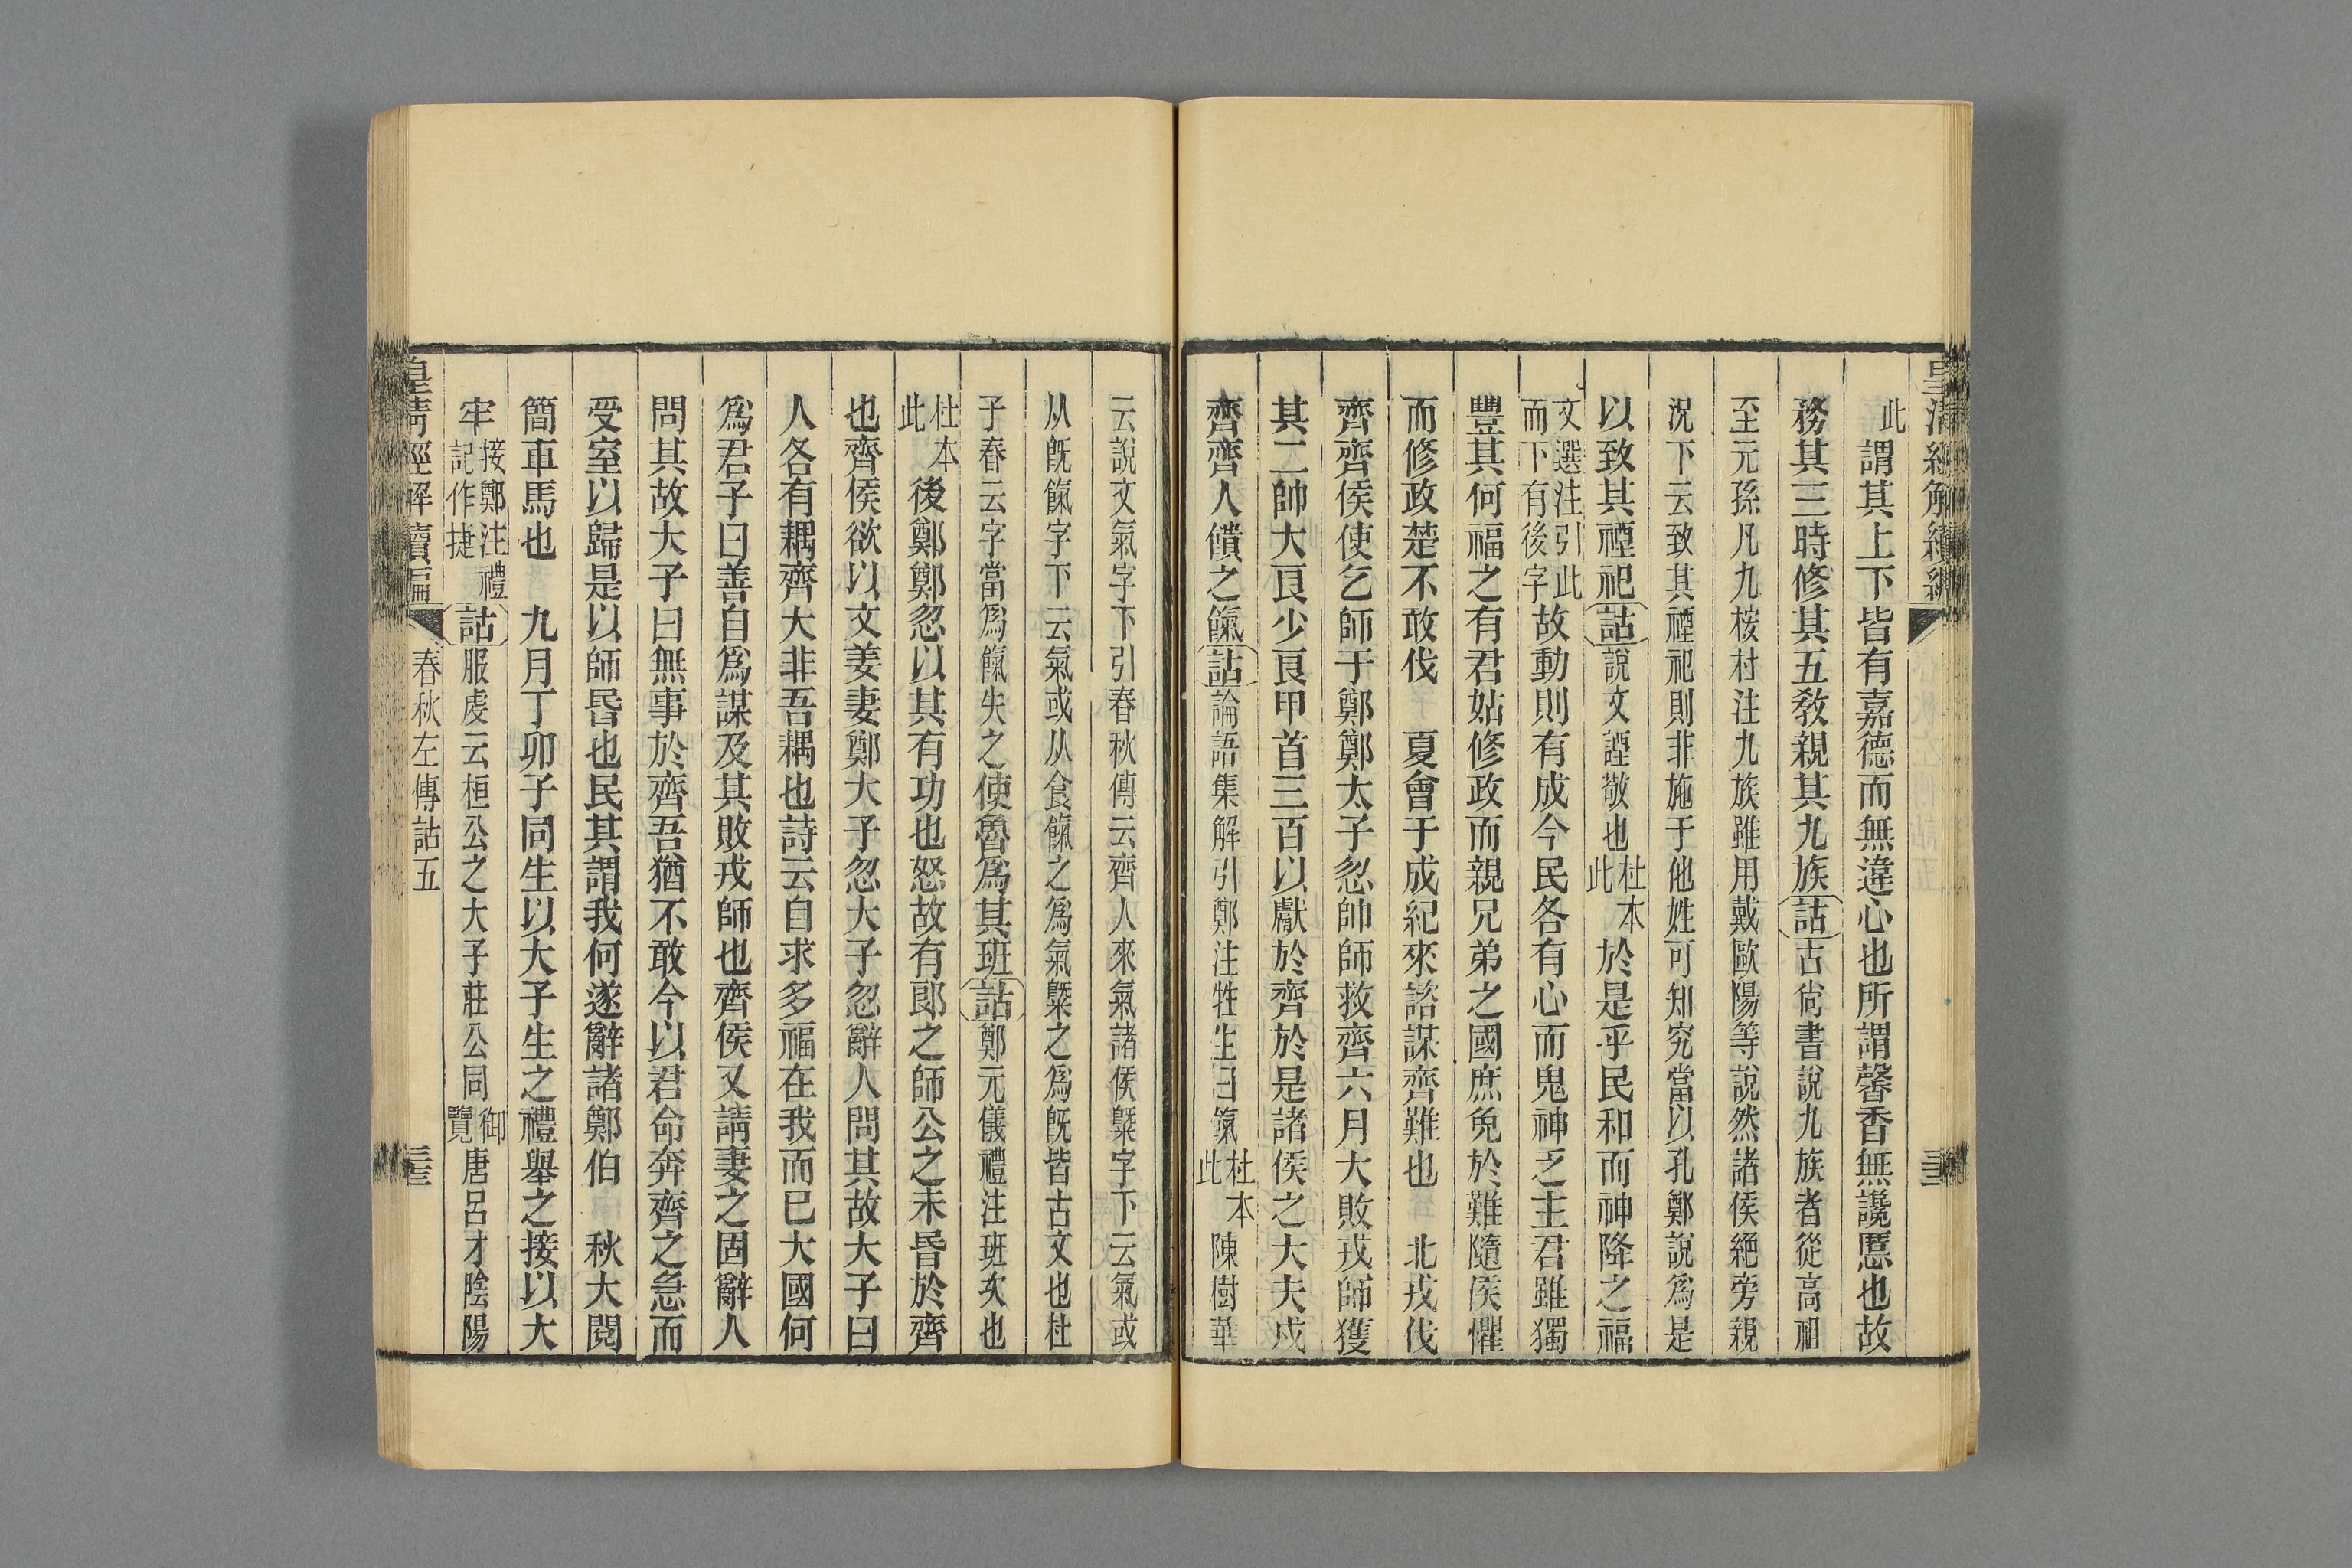 皇清經解續編
此謂其上下皆有嘉德而無違心也所謂馨香無讒慝也故
務其三時修其五敎親其九族詁古尙書說九族者從高祖
至元孫凡九桉杜注九族雖用戴歐陽等說然諸侯絶旁親
況下云致其禋祀則非施于他姓可知究當以孔鄭說爲是
以致其禋祀詁說文禋敬也杜本此於是乎民和而神降之福
文選注引此而下有後字故動則有成今民各有心而鬼神乏主君雖獨
豐其何福之有君姑修政而親兄弟之國庶免於難隨侯懼
而修政楚不敢伐　夏會于成紀來諮謀齊難也　北戎伐
齊齊侯使乞師于鄭鄭太子忽帥師救齊六月大敗戎師獲
其二帥大良少良甲首三百以獻於齊於是諸侯之大夫戍
齊齊人饋之餼詁論語集解引鄭注牲生曰餼杜本此陳樹華
云說文氣字下引春秋傳云齊人來氣諸侯槩字下云氣或
从旣餼字下云氣或从食餼之爲氣槩之爲旣皆古文也杜
子春云字當爲餼失之使魯爲其班詁鄭元儀禮注班次也
杜本此後鄭鄭忽以其有功也怒故有郞之師公之未昏於齊
也齊侯欲以文姜妻鄭大子忽大子忽辭人問其故大子曰
人各有耦齊大非吾耦也詩云自求多福在我而已大國何
爲君子曰善自爲謀及其敗戎師也齊侯又請妻之固辭人
問其故大子曰無事於齊吾猶不敢今以君命奔齊之急而
受室以歸是以師昏也民其謂我何遂辭諸鄭伯　秋大閱
簡車馬也　九月丁卯子同生以大子生之禮舉之接以大
牢接鄭注禮記作捷詁服虔云桓公之大子莊公同御覽唐呂才陰陽
皇淸經解續編
春秋左傳詁五